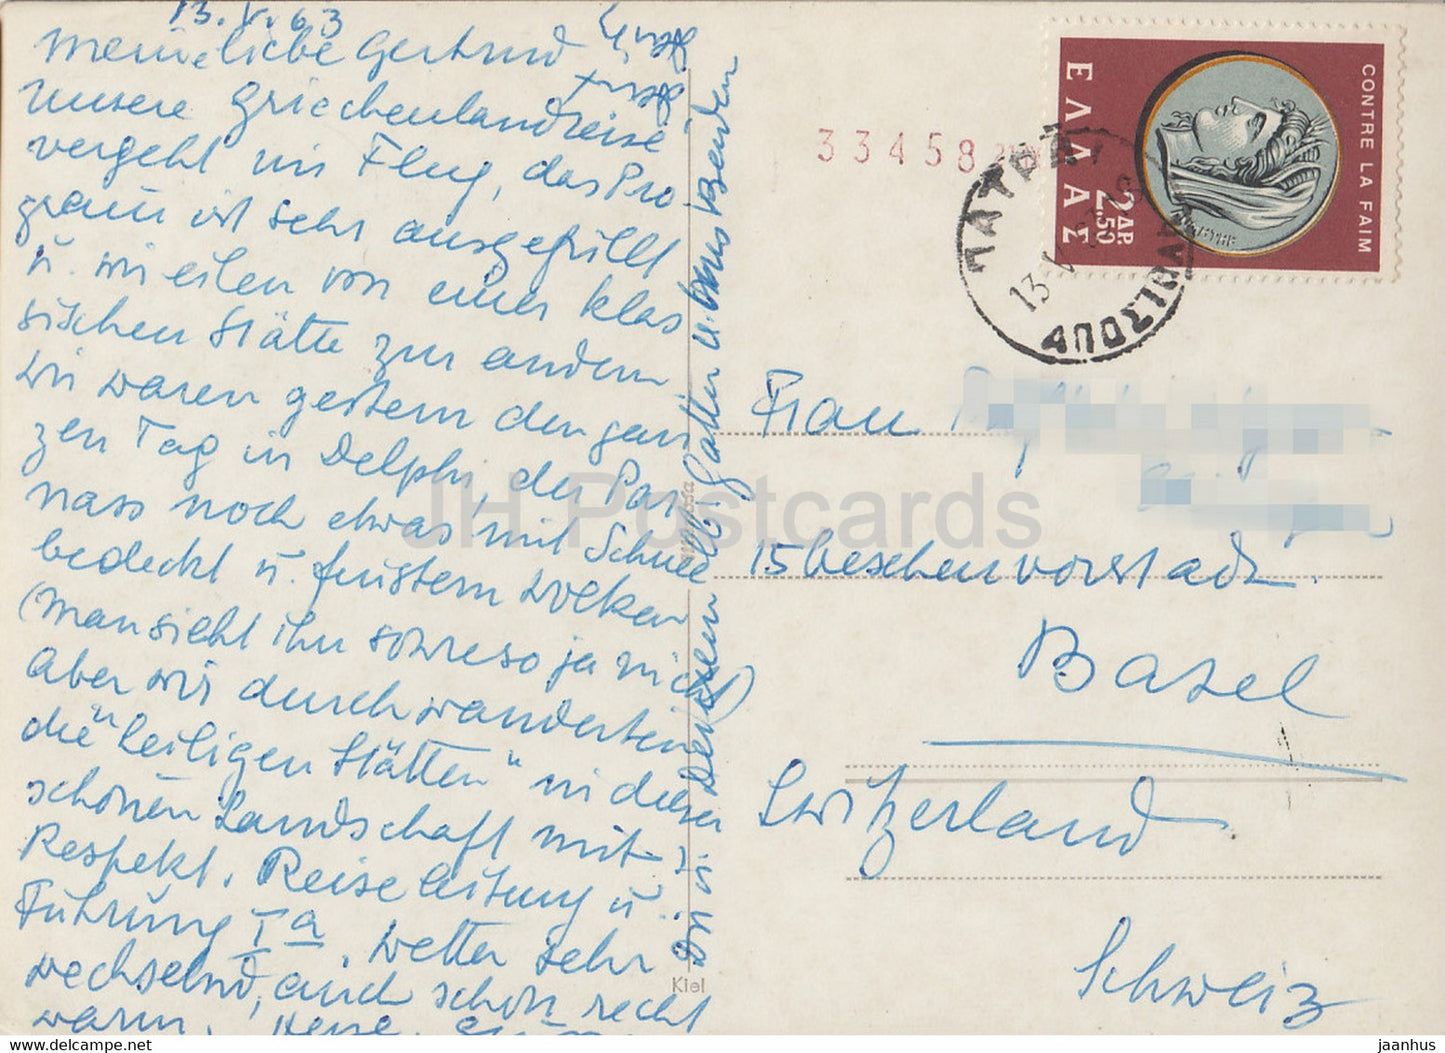 13. V. 63
Meine liebe Gertrud
unsere Griechenlandreise
vergeht im Flug, das Pro
gramm ist sehr ausgefüllt
u. wir eilen von einer klas
sischen Stätte zur andern
wir waren gestern den gan
zen Tag in Delphi, der Par
nass noch etwas mit Schnee
bedeckt u. finstern Wolken
(man sieht ihn sowieso ja nicht)
Aber wir durchwanderten
die "heiligen Stätten" in dieser
schönen Landschaft mit
Respekt. Reiseleitung u.
Führung Ia. Wetter sehr
wechselnd, auch schon recht
warm.
Kiel
33458
ΕΛΛΑΣ
2.50 ΔΡ.
CONTRE LA FAIM
ΠΑΤΡΑΙ
13 V
ΑΠΟΣΤΟΛΗ
Frau
15 Aeschenvorstadt.
Basel
Switzerland
Schweiz
JH Postcards
delcampe.net
jaanhus